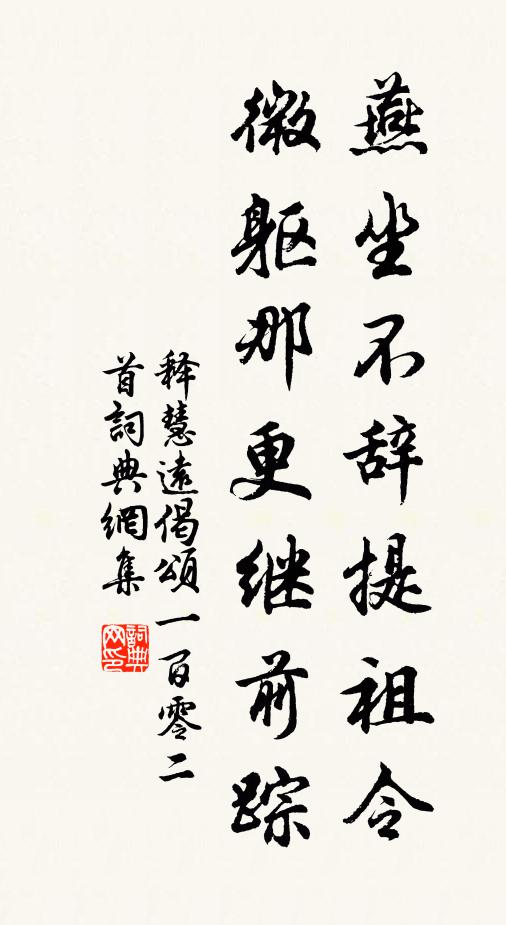 燕坐不辞提祖令
微躯那更继前踪
释慧遠偈頌一百零二
首詞典網集
詞典网印